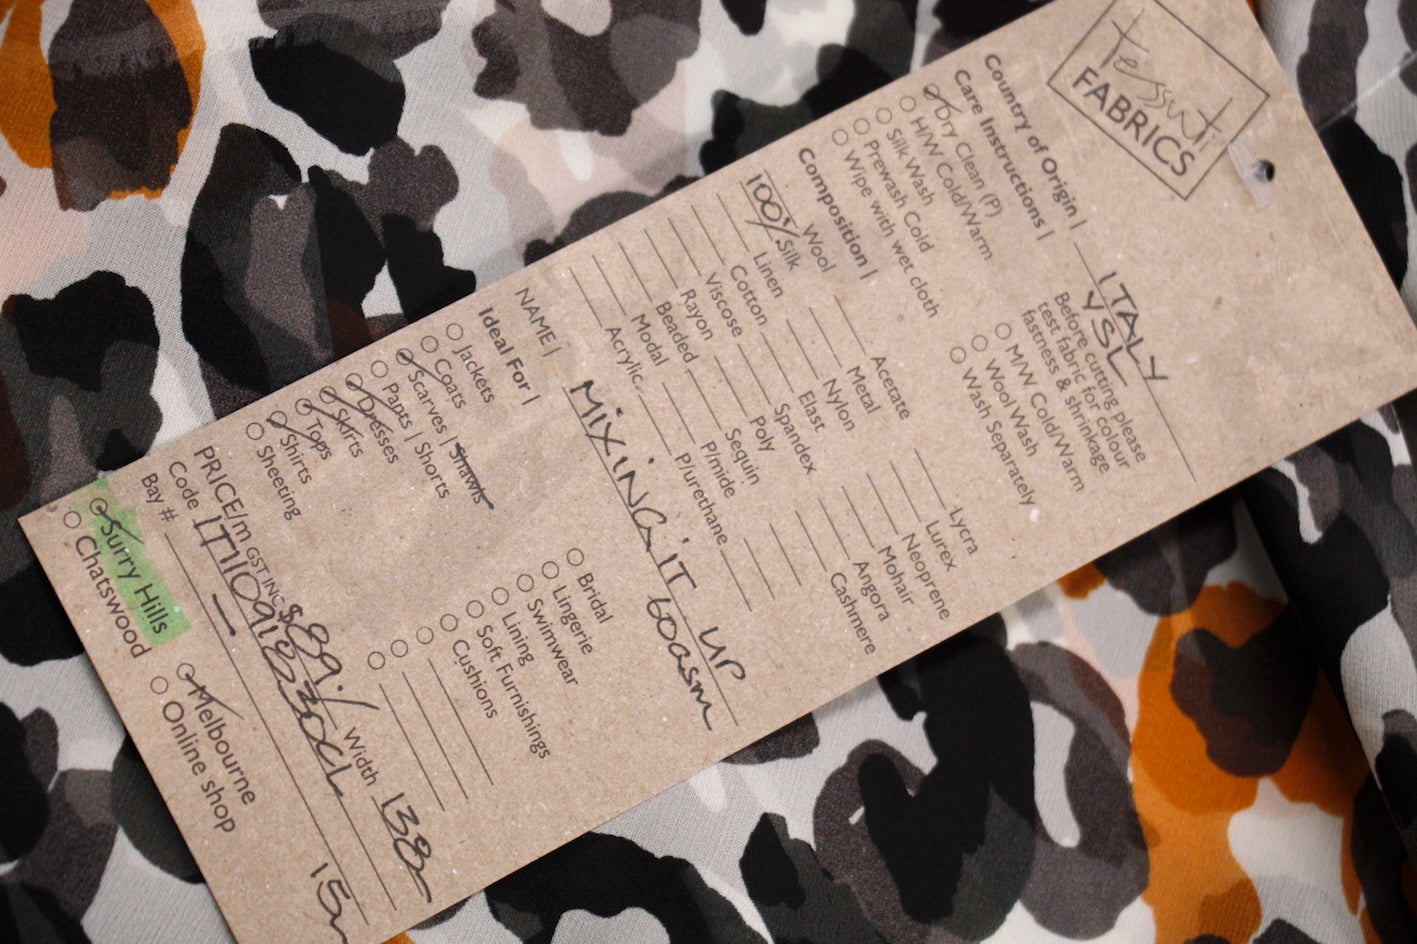 Tessuti
FABRICS
Country of Origin | ITALY
YSL
Care Instructions |
Before cutting please
test fabric for colour
fastness & shrinkage
Dry Clean (P)
H/W Cold/Warm
Silk Wash
Prewash Cold
Wipe with wet cloth
M/W Cold/Warm
Wool Wash
Wash Separately
Composition |
Wool
100% Silk
Linen
Cotton
Viscose
Rayon
Beaded
Modal
Acrylic
Acetate
Metal
Nylon
Elast
Spandex
Poly
Sequin
P/mide
P/urethane
Lycra
Lurex
Neoprene
Mohair
Angora
Cashmere
NAME | MIXING IT UP
60asm
Ideal For |
Jackets
Coats
Scarves | Shawls
Pants | Shorts
Dresses
Skirts
Tops
Shirts
Sheeting
Bridal
Lingerie
Swimwear
Lining
Soft Furnishings
Cushions
PRICE/m GST INC $89.- Width 138
Code
Bay # –
Surry Hills
Chatswood
Melbourne
Online shop
15